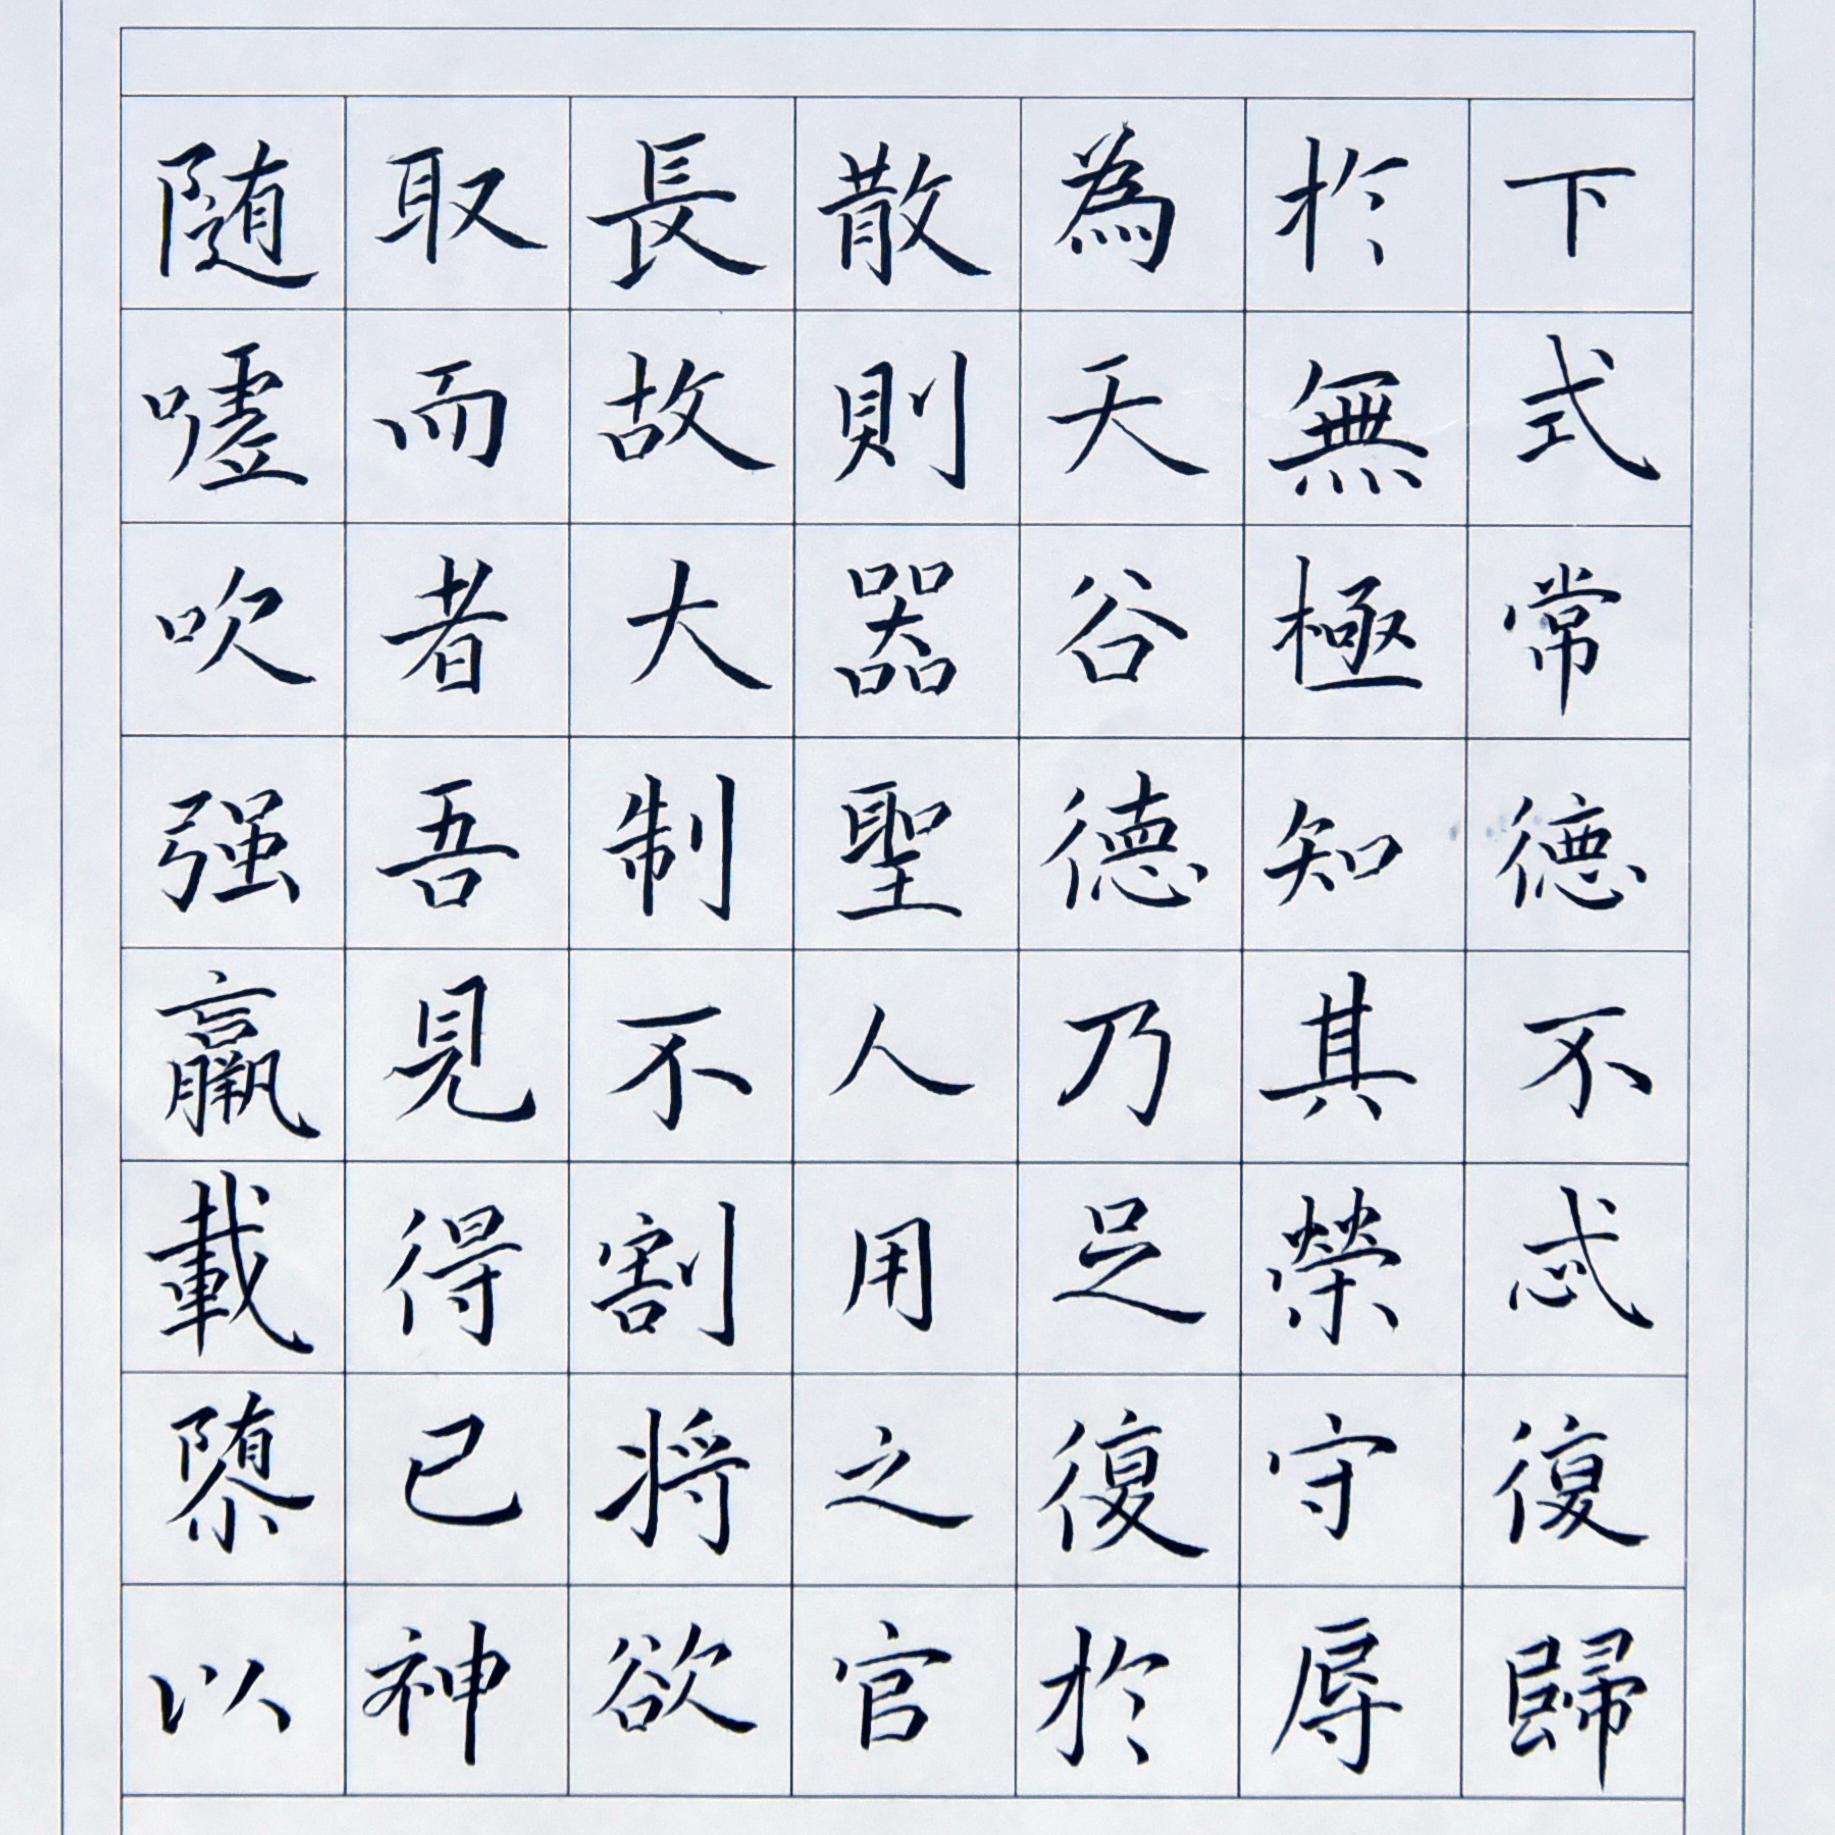 下式常德不忒復歸
於無極知其榮守辱
為天谷德乃足復於
散則器聖人用之官
長故大制不割将欲
取而者吾見得已神
随嘘吹强羸載隳以